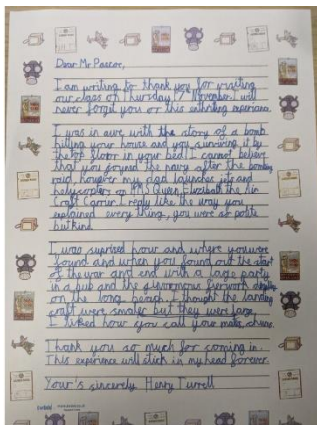 Dear Mr Pascoe,
I am writing to thank you for visiting
our class of Thursday 7th November. I will
never forget you or this enthriling experiance.
I was in awe with the story of a bomb
hitting your house and you surviving it by
the top floor in your bed! I cannot believe
that you joyned the navy after the bombing
raid, however my dad launches jets and
helycopters on HMS Queen Elizabeth the Air
Craft Carrier. I reply like the way you
explained every thing, you were so polite
but kind.
I was suprised hour and where you were
found and when you found out the start
of the war and end with a large party
in a pub and the ginormous fierwork display
on the long beach. I thought the landing
craft were smaler but they were large.
I licked hour you call your mate, chums.
Thank you so much for coming in.
This experience will stick in my head forever.
Your's sincerely Henry Turrell